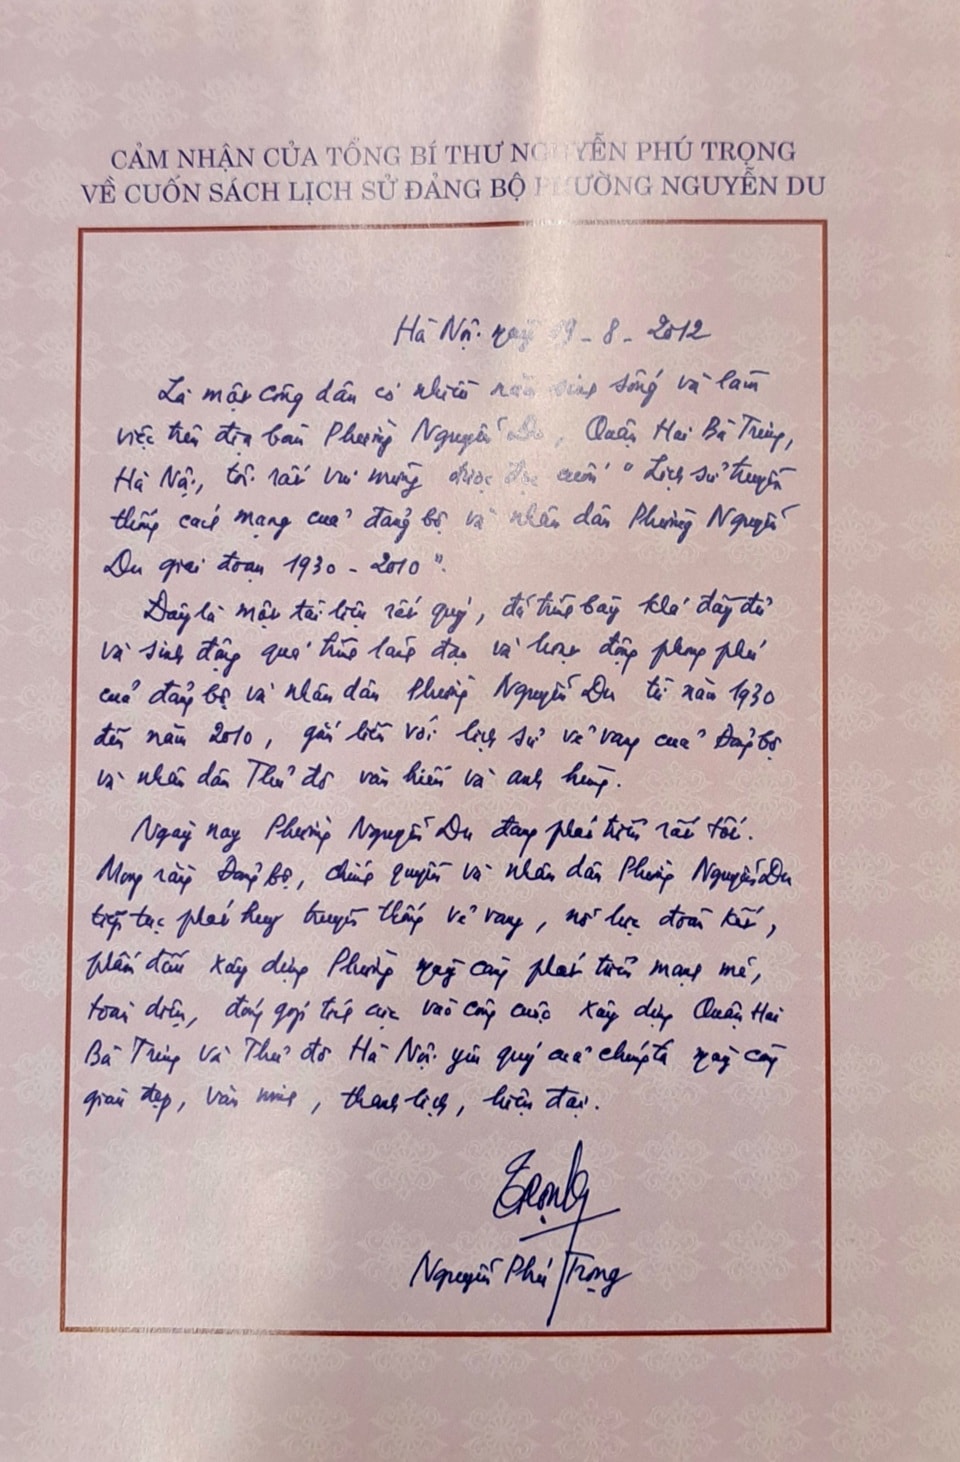 CẢM NHẬN CỦA TỔNG BÍ THƯ NGUYỄN PHÚ TRỌNG
VỀ CUỐN SÁCH LỊCH SỬ ĐẢNG BỘ PHƯỜNG NGUYỄN DU
Hà Nội, ngày 19 - 8 - 2012
Là một công dân có nhiều năm sinh sống và làm
việc trên địa bàn Phường Nguyễn Du, Quận Hai Bà Trưng,
Hà Nội, tôi rất vui mừng được đọc cuốn "Lịch sử truyền
thống cách mạng của đảng bộ và nhân dân Phường Nguyễn
Du giai đoạn 1930 - 2010".
Đây là một tài liệu rất quý, đã trình bày khá đầy đủ
và sinh động quá trình lãnh đạo và hoạt động phong phú
của đảng bộ và nhân dân Phường Nguyễn Du từ năm 1930
đến năm 2010, gắn liền với lịch sử vẻ vang của Đảng bộ
và nhân dân Thủ đô văn hiến và anh hùng.
Ngày nay Phường Nguyễn Du đang phát triển rất tốt.
Mong rằng Đảng bộ, chính quyền và nhân dân Phường Nguyễn Du
tiếp tục phát huy truyền thống vẻ vang, nỗ lực đoàn kết,
phấn đấu xây dựng Phường ngày càng phát triển mạnh mẽ,
toàn diện, đóng góp tích cực vào công cuộc xây dựng Quận Hai
Bà Trưng và Thủ đô Hà Nội yêu quý của chúng ta ngày càng
giàu đẹp, văn minh, thanh lịch, hiện đại.
Trọng
Nguyễn Phú Trọng